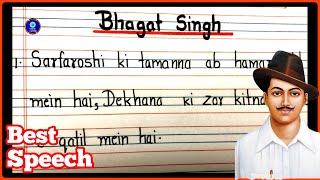 Bhagat Singh
1. Sarfaroshi ki tamanna ab
mein hai, Dekhana ki zor
qatil mein hai.
Best
Speech